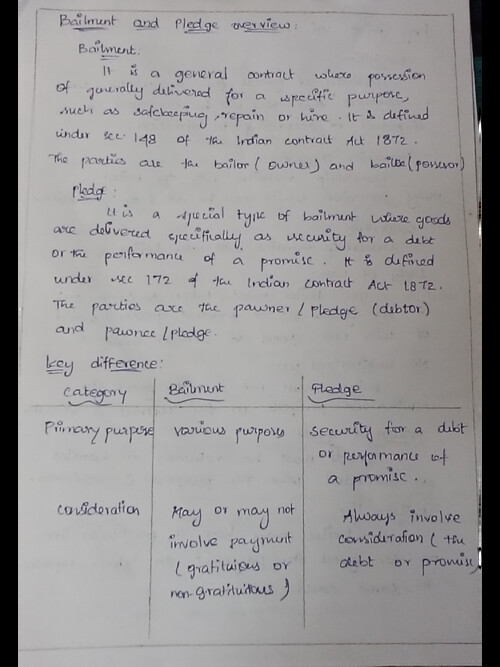 Bailment and Pledge overview:
Bailment:
It is a general contract where possession
of generally delivered for a specific purpose,
such as safekeeping, repain or hire. It is defined
under sec 148 of the Indian contract Act 1872.
The parties are the bailor (owner) and bailee (possesor)
Pledge:
It is a special type of bailment where goods
are delivered specifically as security for a debt
or the performance of a promise. It is defined
under sec 172 of the Indian Contract Act 1872.
The parties are the pawner / pledge (debtor)
and pawnee / pledge.
Key difference:
Category Bailment Pledge
Primary purpose various purposes security for a debt
or performance of
a promise.
consideration May or may not Always involve
involve payment consideration (the
(gratituious or debt or promise)
non-gratituitious)